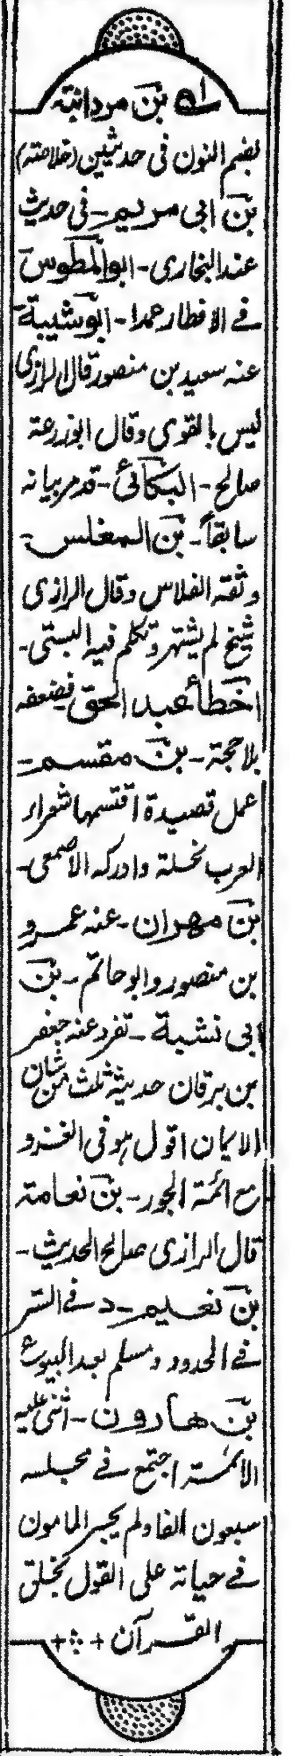 بن مردانبة
بضم النون فى حديثين (خلاصة)
بن ابى مريم - فى حديث
عند البخارى - ابوالمطوس
فى الافطار عمدا - ابوشيبة
عنه سعيد بن منصور قال الرازى
ليس بالقوى وقال ابوزرعة
صالح - البكائى - قد مر بيانه
سابقاً - بن المغلس -
وثقه الفلاس وقال الرازى
شيخ لم يشتهر وتكلم فيه البستى -
اخطأ عبد الحق فضعفه
بلاحجة - بن مقسم -
عمل قصيدة اقتسمها شعراء
العرب نحلة وادركه الاصمعى -
بن مهران - عنه عمرو
بن منصور وابوحاتم - بن
ابى نشبة - تفرد عنه جعفر
بن برقان حديثه ثلث من شان
الايمان اقول هو فى الغزو
مع ائمة الجور - بن نعامة
قال الرازى صالح الحديث -
بن نعيم - د فى الستر
فى الحدود ومسلم بعد البيوع
بن هارون - اثنى عليه
الائمة اجتمع فى مجلسه
سبعون الفا ولم يجبر المامون
فى حياته على القول بخلق
القرآن + ÷ +